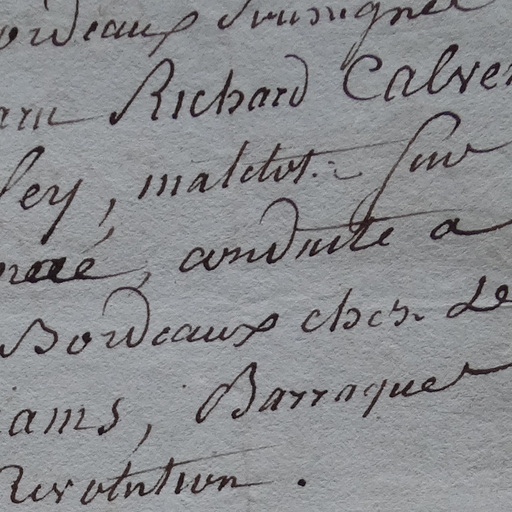 ordeaux Soussigné
Richard Calver
ley, matelot. Sur
né, conduite a
Bordeaux chez Le
iams, Barraquer
Revolution.